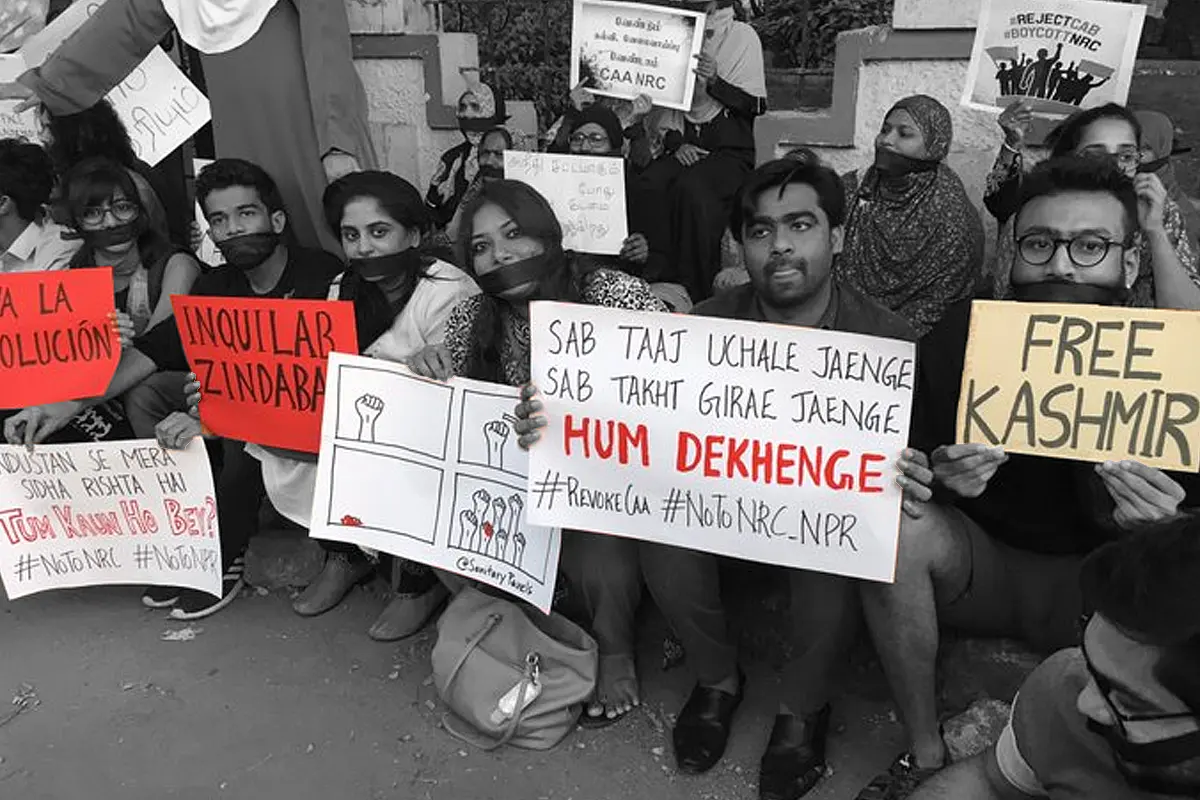 வேண்டும்
கல்வி, வேலைவாய்ப்பு
வேண்டாம்
CAA NRC
#REJECTCAB
#BOYCOTTNRC
VA LA
OLUCIÓN
INQUILAB
ZINDABA
NDUSTAN SE MERA
SIDHA RISHTA HAI
TUM KAUN HO BEY?
#NOTONRC #NOTONPR
@SanitaryPanels
SAB TAAJ UCHALE JAENGE
SAB TAKHT GIRAE JAENGE
HUM DEKHENGE
#REVOKECAA #NOTONRC_NPR
FREE
KASHMIR